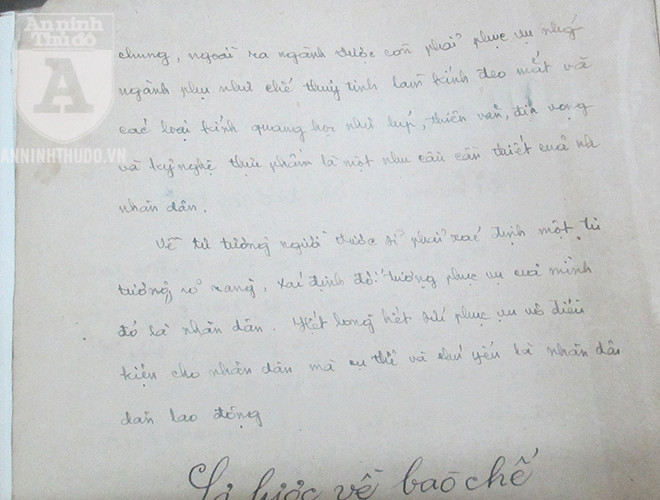 An ninh
Thủ đô
A
ANNINHTHUDO.VN
chung, ngoài ra ngành dược còn phải phục vụ nhữ
ngành phụ như chế thuỷ tinh làm kính đeo mắt và
các loại kính quang học như lúp, thiên văn, viễn vọng
và kỹ nghệ thực phẩm là một nhu cầu cần thiết của nh
nhân dân.
Về tư tưởng người dược sĩ phải xác định một tư
tưởng rõ ràng, xác định đối tượng phục vụ của mình
đó là nhân dân. Hết lòng hết sức phục vụ vô điều
kiện cho nhân dân mà cụ thể và chủ yếu là nhân dân
dân lao động
Sơ lược về bào chế